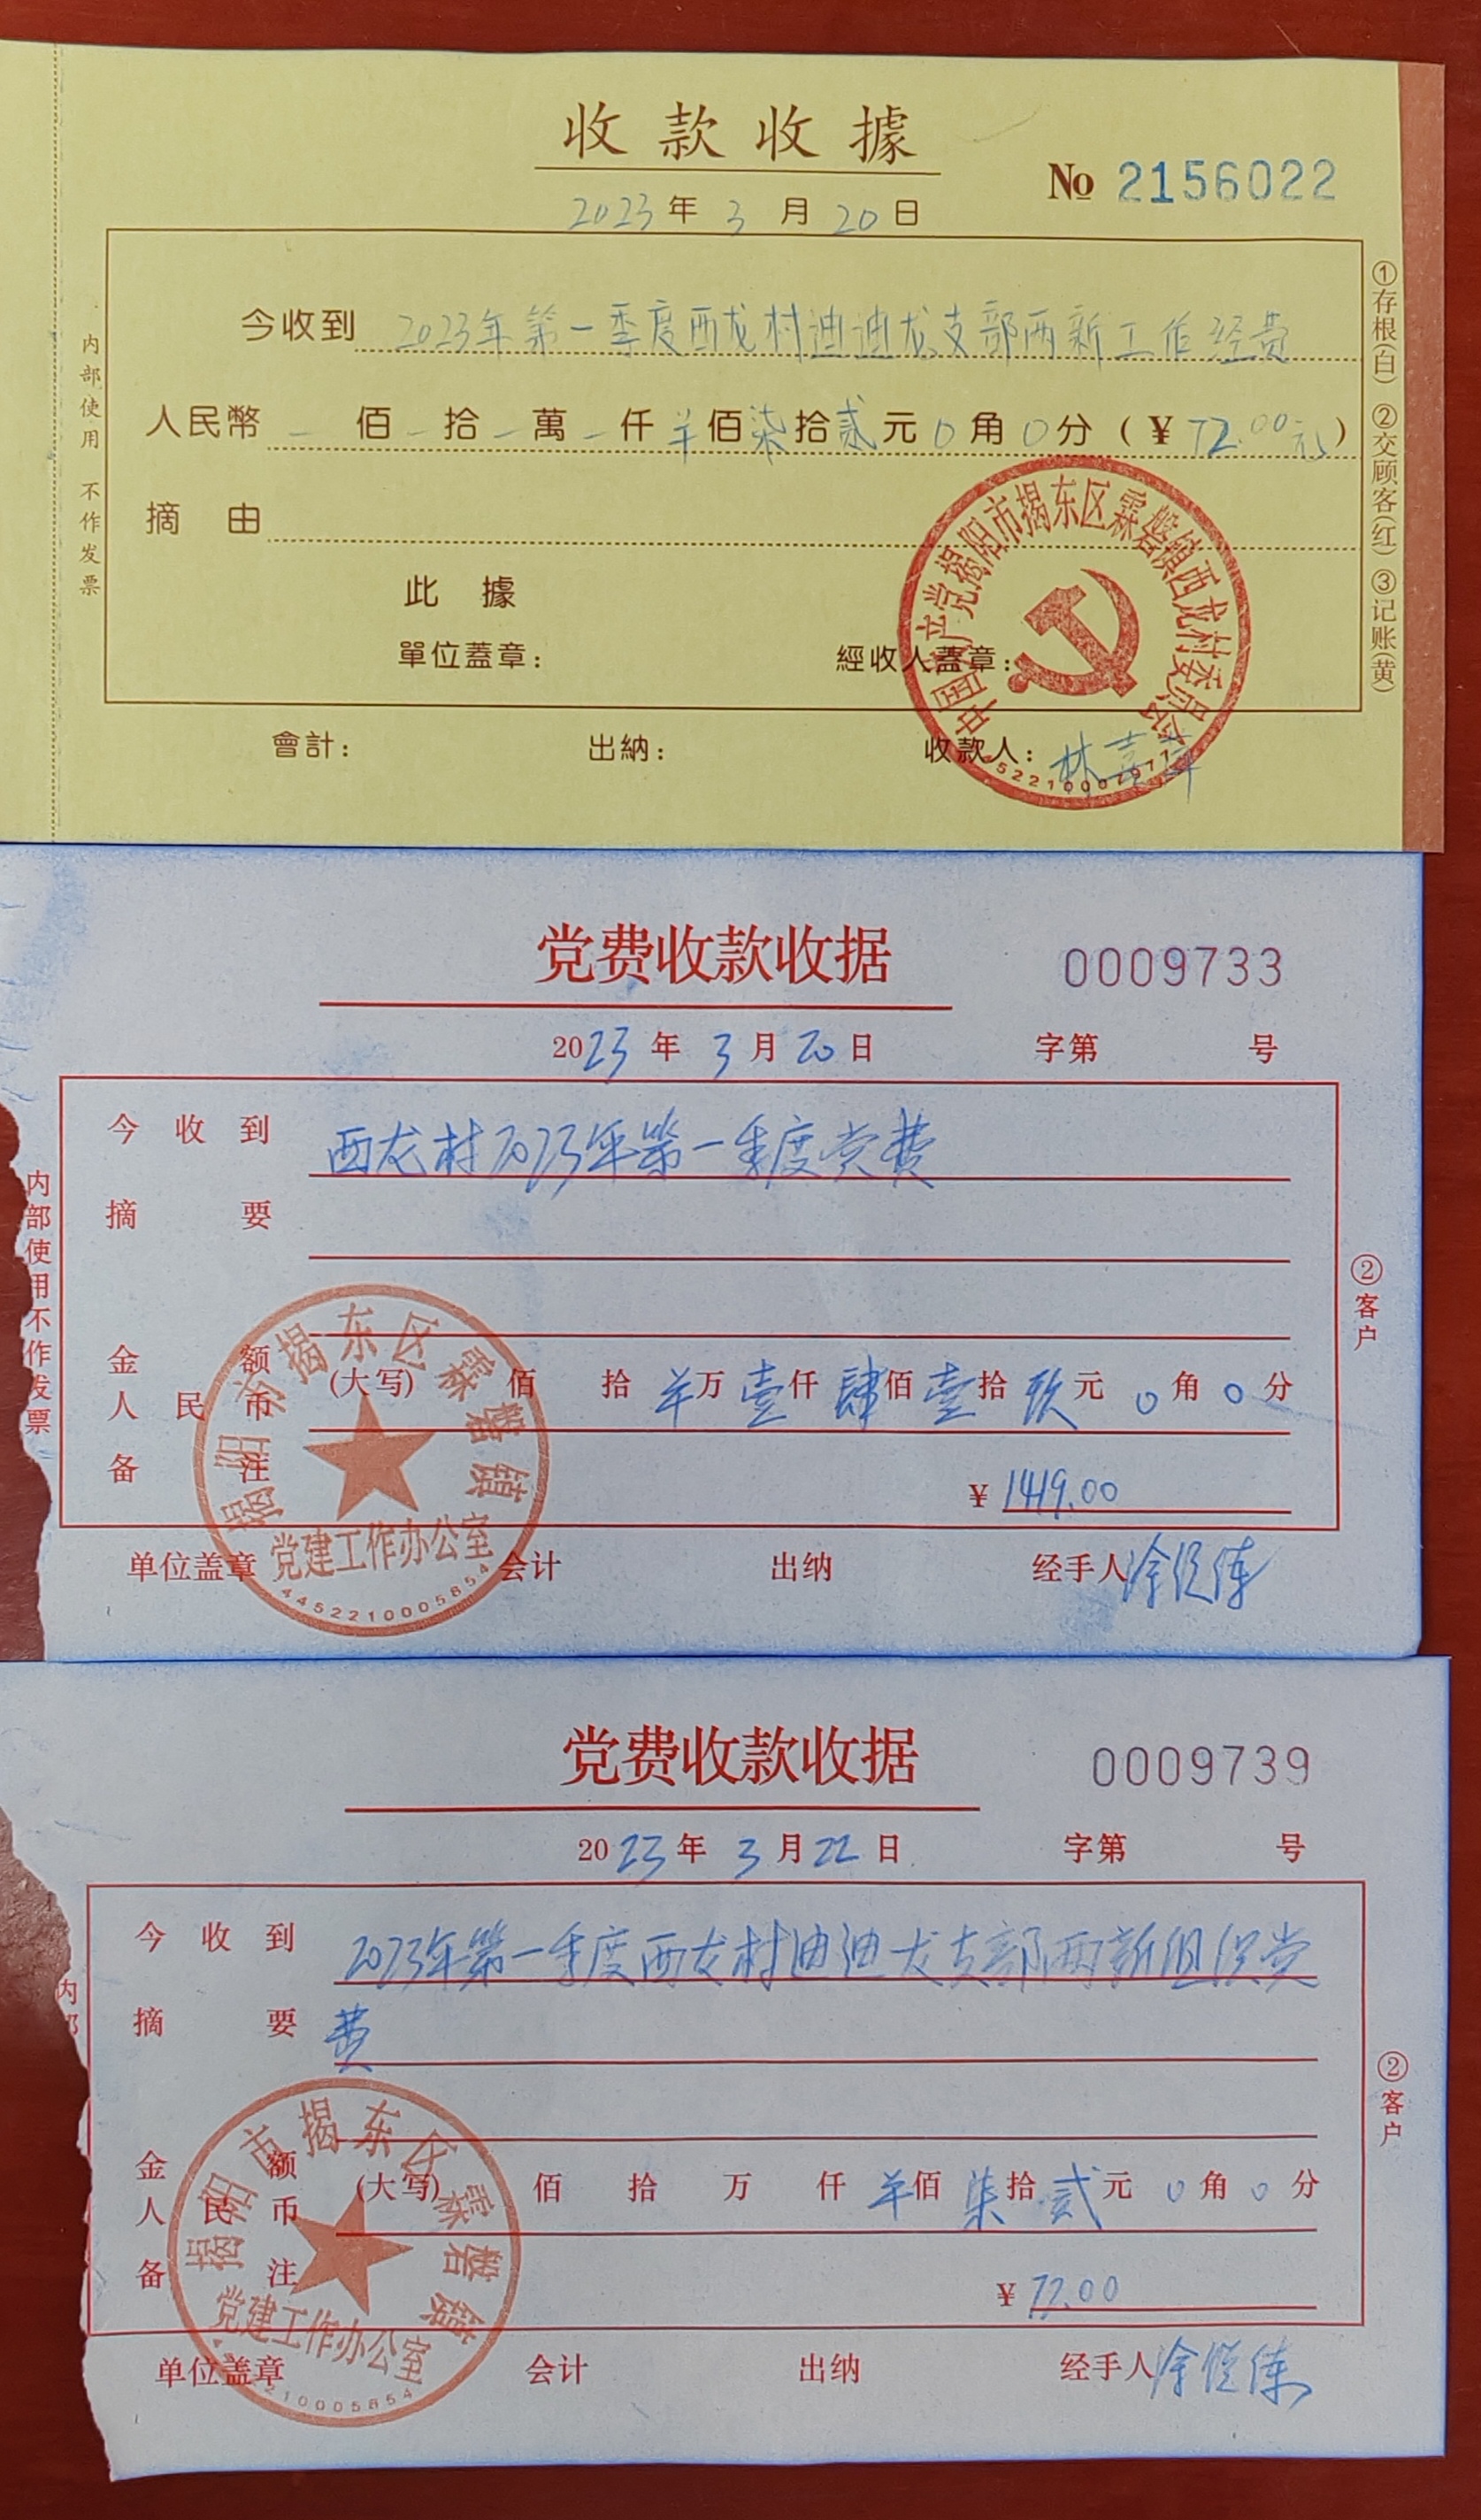 收款收據
No 2156022
2023年3月20日
今收到 2023年第一季度西龙村迪迪龙支部两新工作经费
人民幣 一佰一拾一萬一仟羊佰柒拾贰元0角0分(¥72.00元)
摘由
此據
單位蓋章:
經收人蓋章:
會計:
出納:
收款人:
内部使用 不作发票
①存根(白) ②交顾客(红) ③记账(黄)
中国共产党揭阳市揭东区霖磐镇西龙村委员会
党费收款收据
0009733
2023年3月20日
字第 号
今收到 西龙村2023年第一季度党费
摘要
金额
人民币
(大写) 佰 拾 羊万壹仟肆佰壹拾玖元0角0分
备注
¥1419.00
单位盖章
会计
出纳
经手人
内部使用不作发票
②客户
揭阳市揭东区霖磐镇
党建工作办公室
4452210005854
党费收款收据
0009739
2023年3月22日
字第 号
今收到 2023年第一季度西龙村迪迪龙支部两新组织党
摘要 费
金额
人民币
(大写) 佰 拾 万 仟羊佰柒拾贰元0角0分
备注
¥72.00
单位盖章
会计
出纳
经手人
内
②客户
揭阳市揭东区霖磐镇
党建工作办公室
210005854